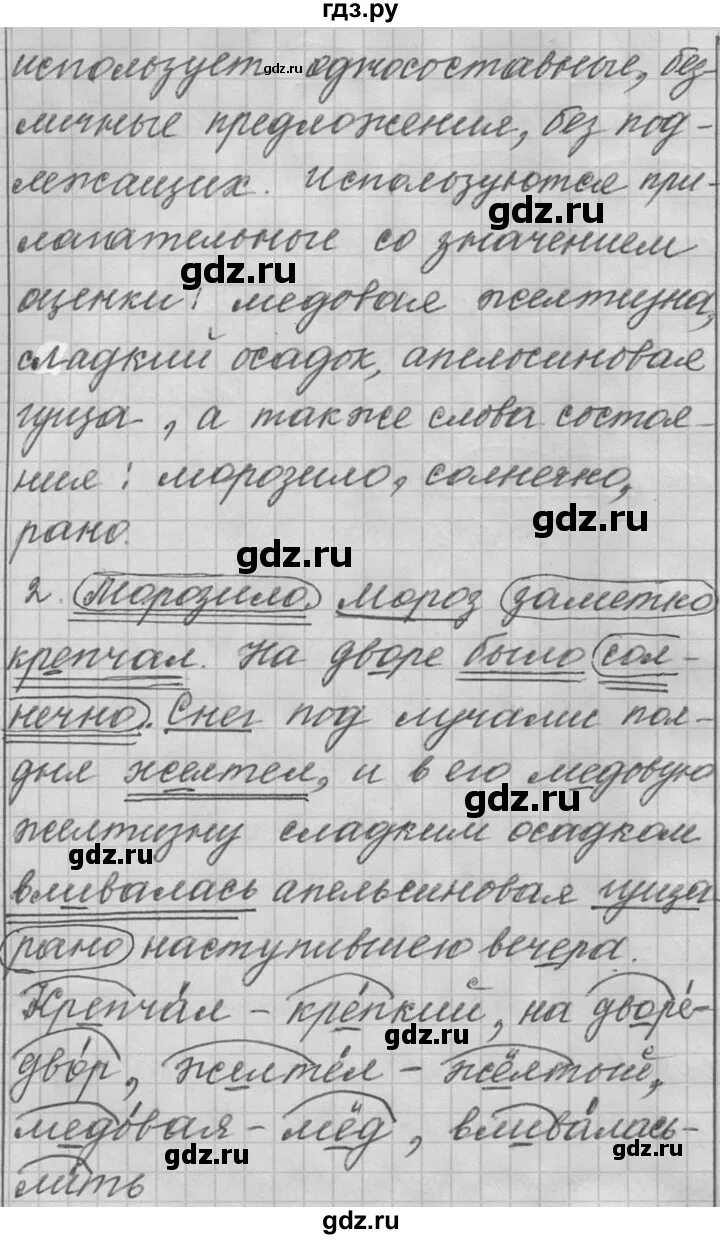 гдз.ру
использует односоставные, без-
личные предложения, без под-
лежащих. Используются при-
лагательные со значением
оценки: медовая желтизна,
сладкий осадок, апельсиновая
гуща, а также слова состоя-
ния: морозило, солнечно,
рано.
2. Морозило. Мороз заметно
крепчал. На дворе было сол-
нечно. Снег под лучами пол-
дня желтел, и в его медовую
желтизну сладким осадком
вливалась апельсиновая гуща
рано наступившего вечера.
Крепчал – крепкий, на дворе-
двор, желтел – жёлтый,
медовая – мёд, вливалась-
лить
gdz.ru
gdz.ru
gdz.ru
gdz.ru
gdz.ru
gdz.ru
gdz.ru
gdz.ru
gdz.ru
gdz.ru
gdz.ru
gdz.ru